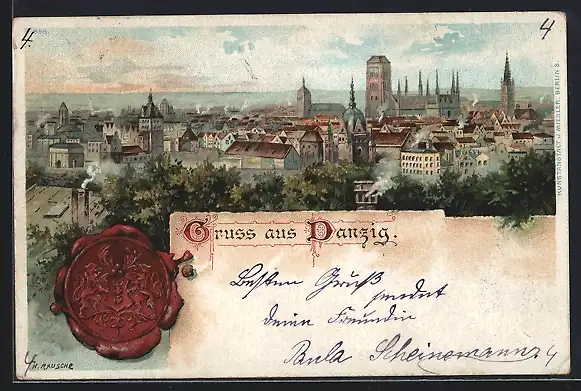 4.
4
KUNSTANSTALT J. MIESLER, BERLIN S.
Gruss aus Danzig.
Besten Gruß
sendet
deine Freundin
Paula Scheinemann
4
TH. RAUSCHE